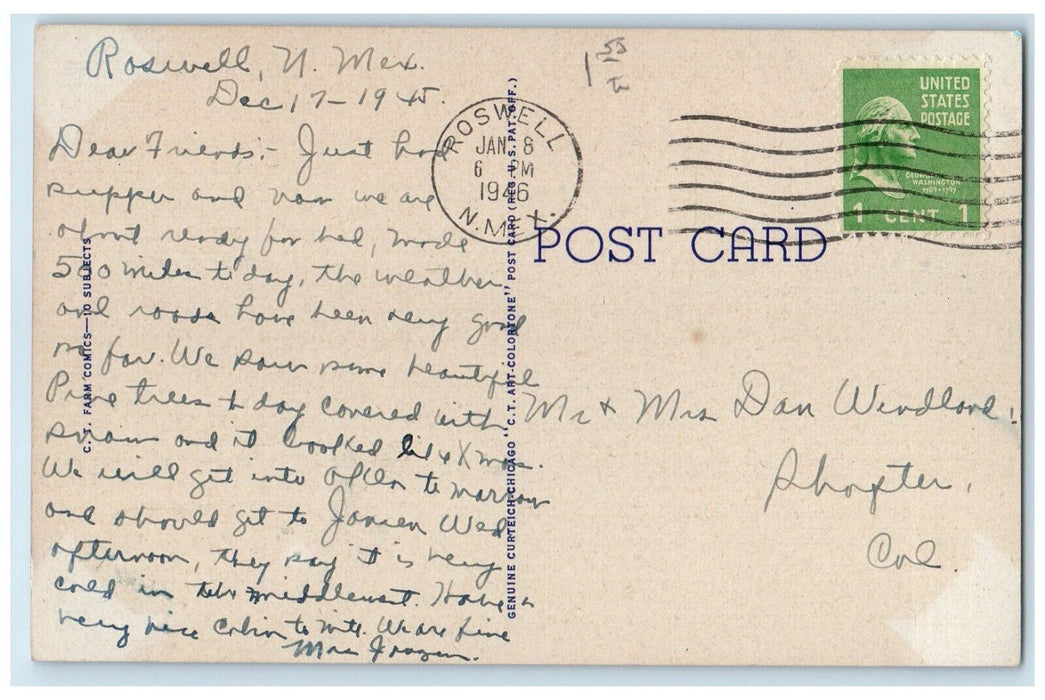 Roswell, N. Mex.
Dec 17-1945.
Dear Friends:- Just had
supper and now we are
about ready for bed, made
500 miles to day, the weather
and roads have been very good
so far. We saw some beautiful
Pine trees to day covered with
snow and it looked like Xmas.
We will get into Okla to marrow
and should get to Wed
afternoon, they say it is very
cold in the middlewest. Have a
very nice cabin to nite. We are fine
Mrs
C.T. FARM COMICS—10 SUBJECTS
GENUINE CURTEICH-CHICAGO "C.T. ART-COLORTONE" POST CARD (REG. U.S. PAT. OFF.)
ROSWELL
JAN 8
6 PM
1946
N.MEX.
POST CARD
UNITED
STATES
POSTAGE
GEORGE
WASHINGTON
1789-1797
1 CENT 1
Mr & Mrs Dan
Shafter,
Cal.